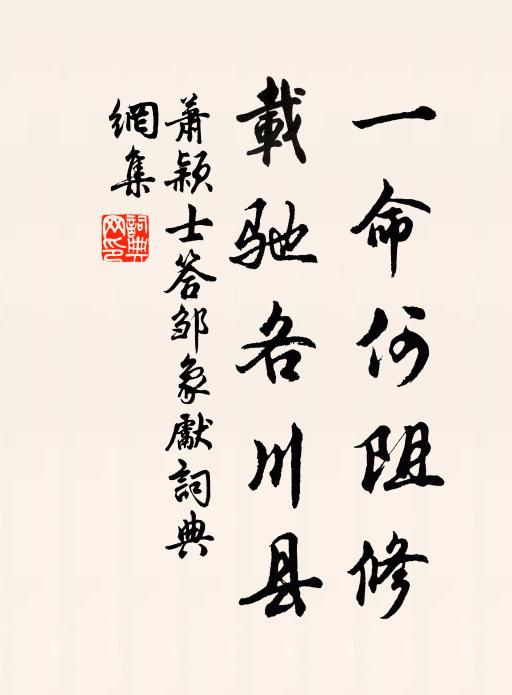 一命何阻修
載驰各川县
蕭颖士答邹象獻詞典
網集
詞典
网印